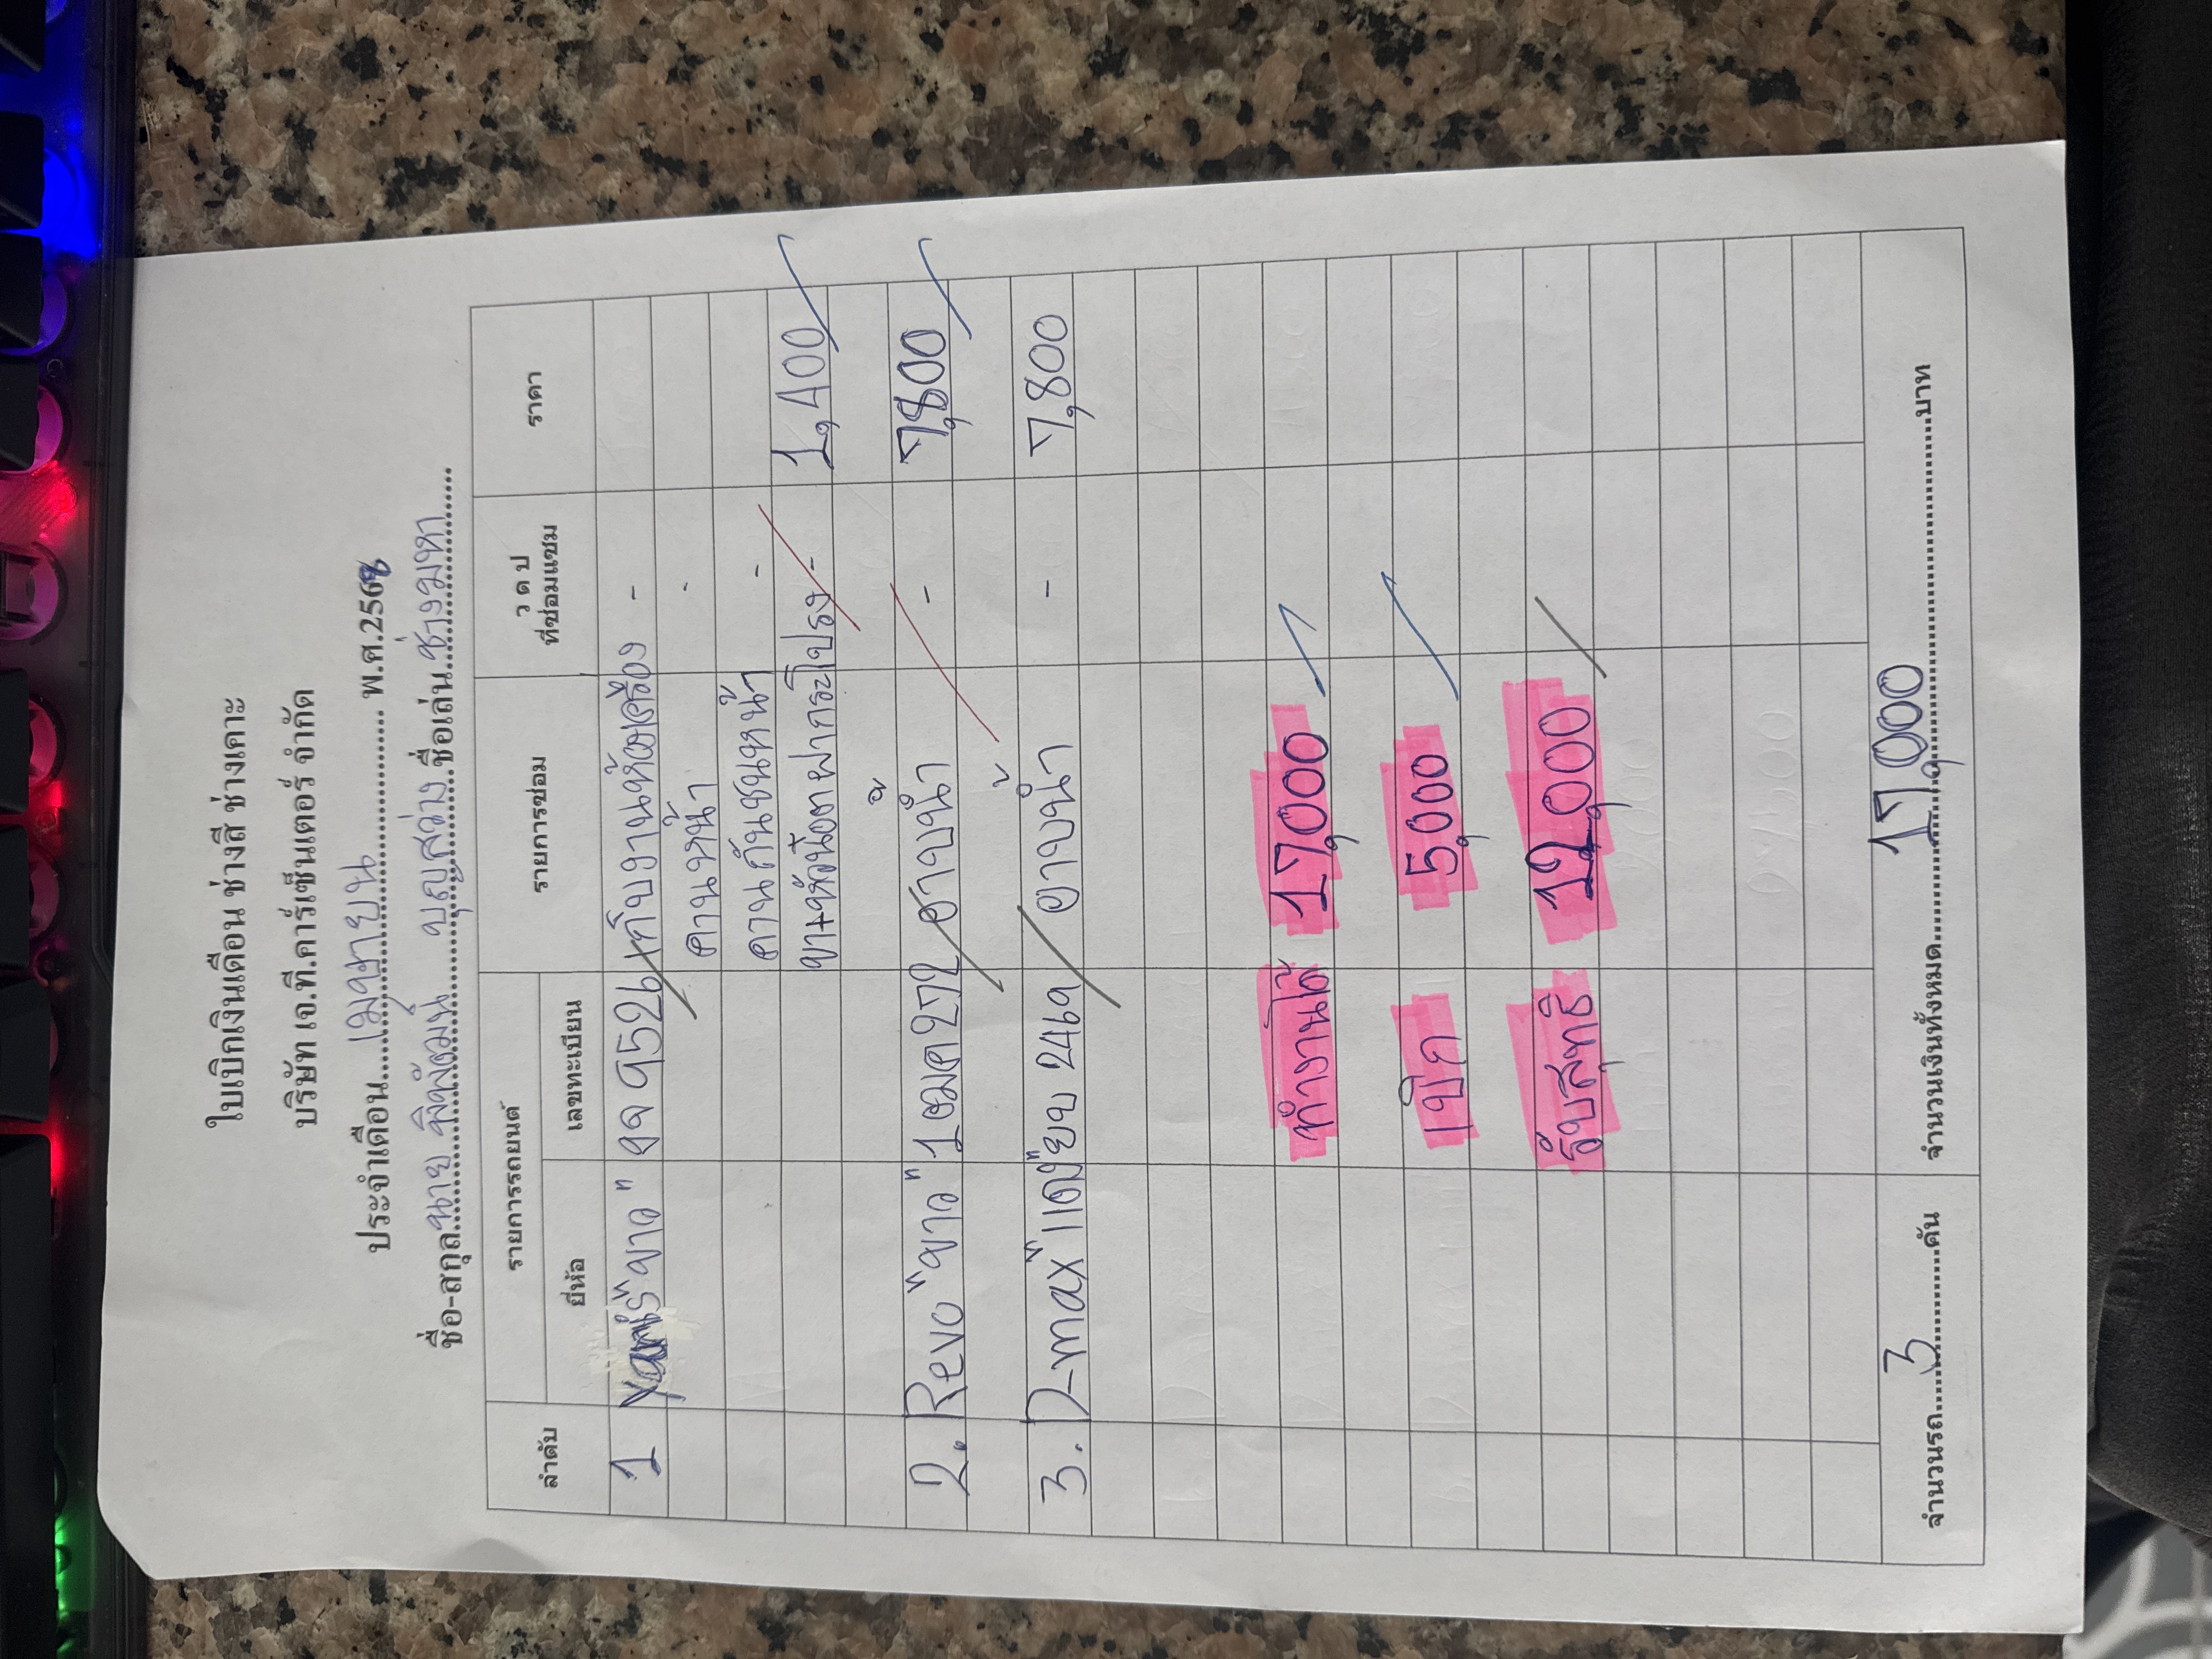 ใบเบิกเงินเดือน ช่างสี ช่างเคาะ
บริษัท เจ.ที.คาร์เซ็นเตอร์ จำกัด
ประจำเดือน....เมษายน.... พ.ศ.2568
ชื่อ-สกุล.นาย พิพัฒน์ บุญสว่าง.ชื่อเล่น.ช่างมหา
ลำดับ รายการรถยนต์ รายการซ่อม ว ด ป ที่ซ่อมแซม ราคา
ยี่ห้อ เลขทะเบียน
1 Yaris "ขาว" 9526 เก็บงานห้องเครื่อง -
คานหน้า -
คานกันชนหน้า -
ขา+หัวน็อตฝากระโปรง - 1,400
2. Revo "ขาว" 1ฒค 272 อาบน้ำ - 7,800
3. D-max "แดง" ยบ 2469 อาบน้ำ - 7,800
ทำงานได้ 17,000
เบิก 5,000
รับสุทธิ 12,000
จำนวนรถ....3....คัน จำนวนเงินทั้งหมด....17,000....บาท